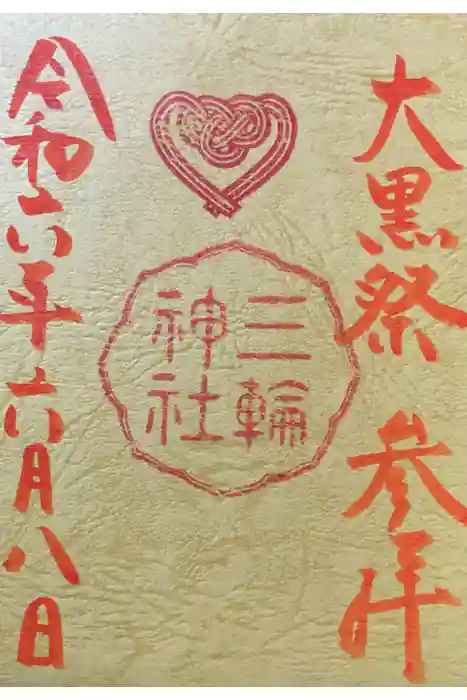 大黒祭 参拝
三輪
神社
令和六年六月八日